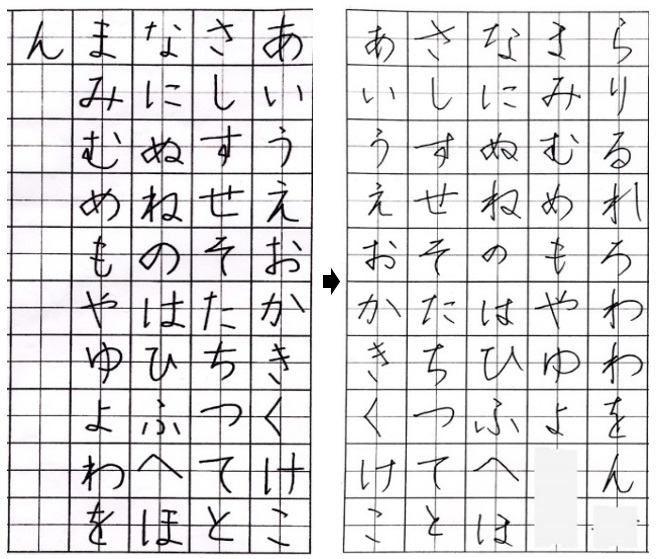 あいうえおかきくけこ
さしすせそたちつてと
なにぬねのはひふへほ
まみむめもやゆよわを
ん
あいうえおかきくけこ
さしすせそたちつてと
なにぬねのはひふへほ
まみむめもやゆよ
らりるれろわわをん